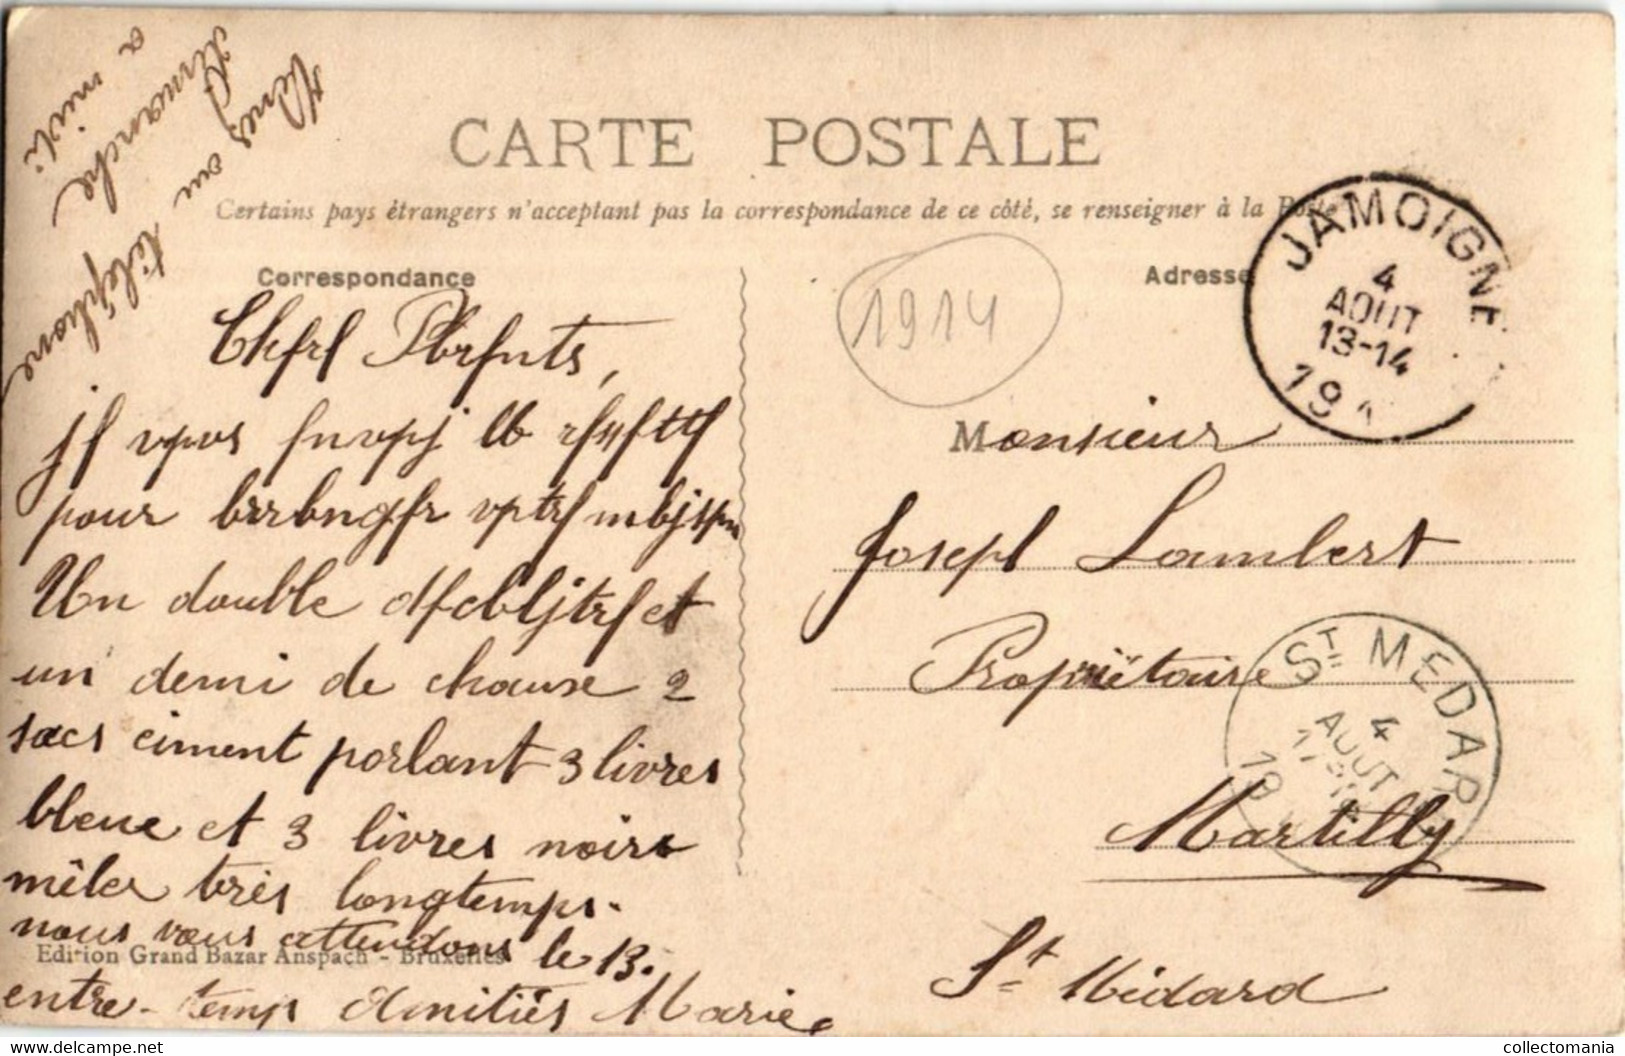 CARTE POSTALE
Certains pays étrangers n'acceptent pas la correspondance de ce côté, se renseigner à la Poste
Correspondance
Adresse
1914
JAMOIGNE
4
AOUT
13-14
191
Venez au téléphone
dimanche
a midi
Chfrl Pbrfnts,
jf vpus fnvpj lb rfçfttf
pour brrbngfr vptrf mbjspn
Un double dfcbljtrf et
un demi de chause 2
sacs ciment portant 3 livres
bleue et 3 livres noire
mêler très longtemps.
nous vous attendons le 13.
entre-temps Amitiés Marie
Edition Grand Bazar Anspach - Bruxelles
Monsieur
Joseph Lambert
Propriétaire
Martilly
St Médard
ST MEDARD
4
AOUT
19
collectomania.com